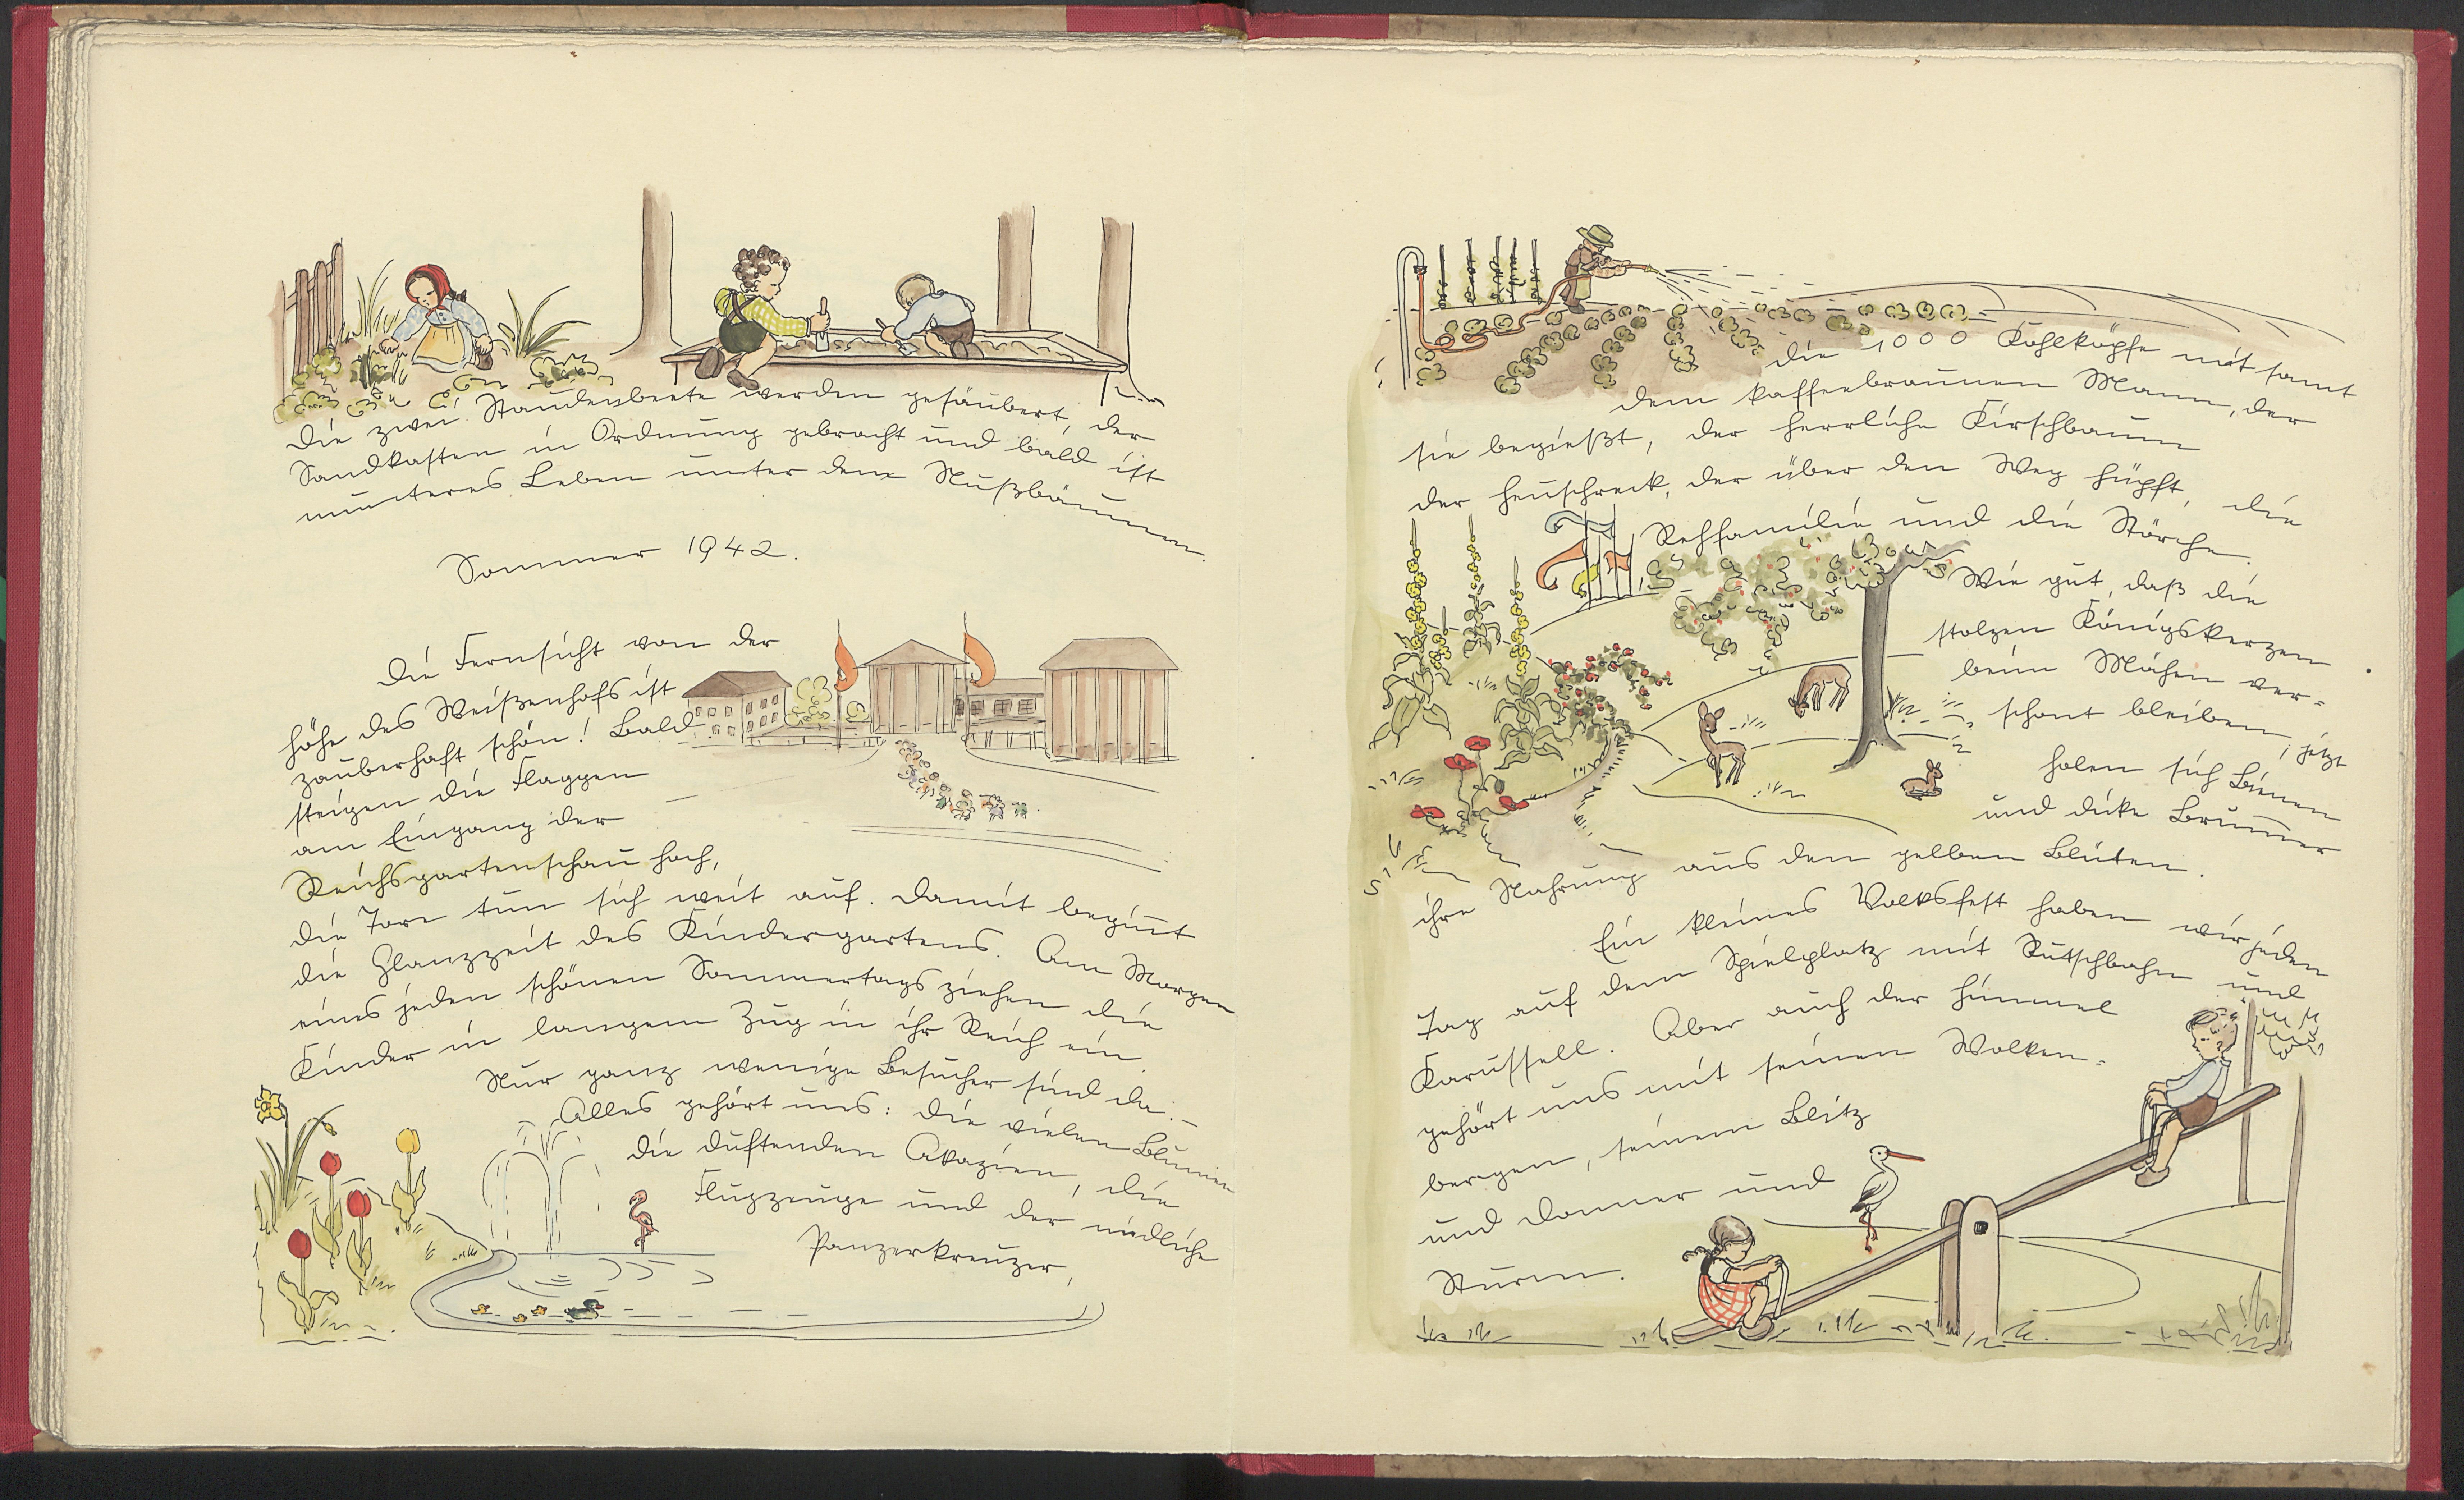 Die zwei Staudenbeete werden gesäubert, der
Sandkasten in Ordnung gebracht und bald ist
munteres Leben unter den Nußbäumen
Sommer 1942.
Die Fernsicht von der
Höhe des Weißenhofs ist
zauberhaft schön! Bald
steigen die Flaggen
am Eingang der
Reichsgartenschau hoch,
die Tore tun sich weit auf. Damit begin̅t
die Glanzzeit des Kindergartens. Am Morgen
eines jeden schönen Sommertags ziehen die
Kinder in langem Zug in ihr Reich ein.
Nur ganz wenige Besucher sind da. –
Alles gehört uns: die vielen Blumen
die duftenden Akazien, die
Flugzeuge und der niedliche
Panzerkreuzer,
die 1000 Kohlköpfe mit samt
dem kaffeebraunen Mann, der
sie begießt, der herrliche Kirschbaum
der Heuschreck, der über den Weg hüpft, die
Rehfamilie und die Störche.
Wie gut, daß die
stolzen Königskerzen
beim Mähen ver=
schont bleiben, jetzt
holen sich Bienen
und dicke Brum̅er
ihre Nahrung aus den gelben Blüten.
Ein kleines Volksfest haben wir jeden
Tag auf dem Spielplatz mit Rutschbahn und
Karussell. Aber auch der Himmel
gehört uns mit seinen Wolken=
bergen, seinem Blitz
und Donner und
Sturm.